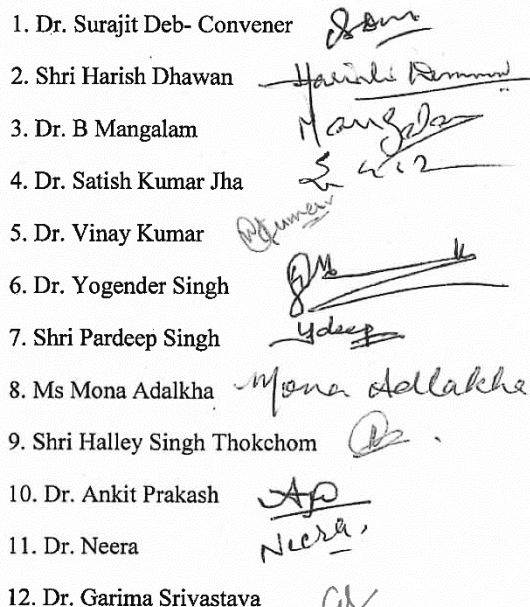 1. Dr. Surajit Deb- Convener
2. Shri Harish Dhawan Harish Dhawan
3. Dr. B Mangalam Mangalam
4. Dr. Satish Kumar Jha
5. Dr. Vinay Kumar VKumar
6. Dr. Yogender Singh
7. Shri Pardeep Singh
8. Ms Mona Adalkha Mona Adlakha
9. Shri Halley Singh Thokchom
10. Dr. Ankit Prakash AP
11. Dr. Neera Neera.
12. Dr. Garima Srivastava